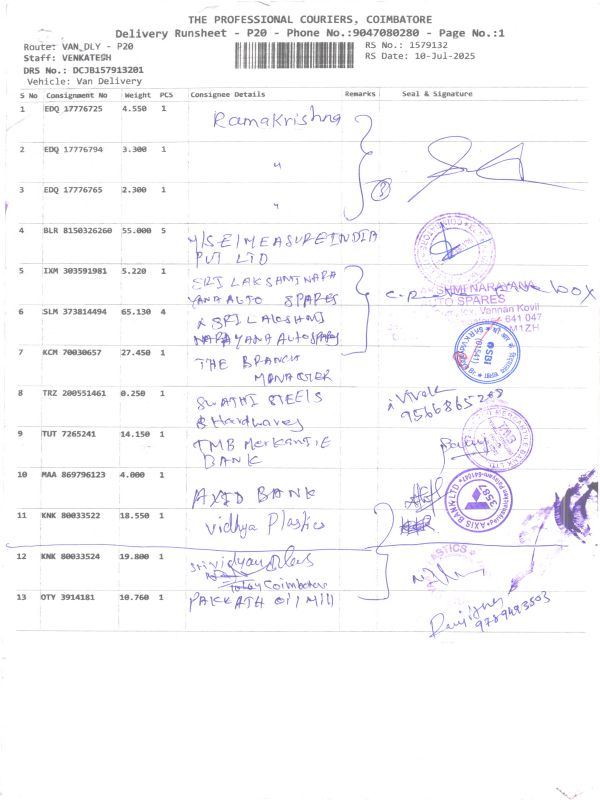 THE PROFESSIONAL COURIERS, COIMBATORE
Delivery Runsheet - P20 - Phone No.:9047080280 - Page No.:1
Route: VAN_DLY - P20
RS No.: 1579132
Staff: VENKATESH
RS Date: 10-Jul-2025
DRS No.: DCJB157913201
Vehicle: Van Delivery
S No Consignment No Weight PCS Consignee Details Remarks Seal & Signature
1 EDQ 17776725 4.550 1 Ramakrishna
2 EDQ 17776794 3.300 1 "
3 EDQ 17776765 2.300 1 "
3
4 BLR 8150326260 55.000 5 M/S E/MEASUREINDIA
PVT LTD
5 IXM 303591981 5.220 1 SRI LAKSHMI NARA
YANA AUTO SPARES
LAKSHMI NARAYANA
AUTO SPARES
Vannan Kovil
641 047
M1ZH
6 SLM 373814494 65.130 4 & SRI LAKSHMI
NARAYANA AUTO SPARES
7 KCM 70030657 27.450 1 THE BRANCH
MANAGER
SBI
8 TRZ 200551461 0.250 1 SWATHI STEELS
& Hardwares
Vivek
9566865268
9 TUT 7265241 14.150 1 TMB Merkantile
BANK
MERCANTILE BANK LTD
10 MAA 869796123 4.000 1 AXIS BANK
AXIS BANK LTD
3587
11 KNK 80033522 18.550 1 Vidhya Plastics
12 KNK 80033524 19.800 1 Sri vidyaa
Today Coimbatore
PLASTICS
13 OTY 3914181 10.760 1 PAKKATH Oil Mill
9789493503